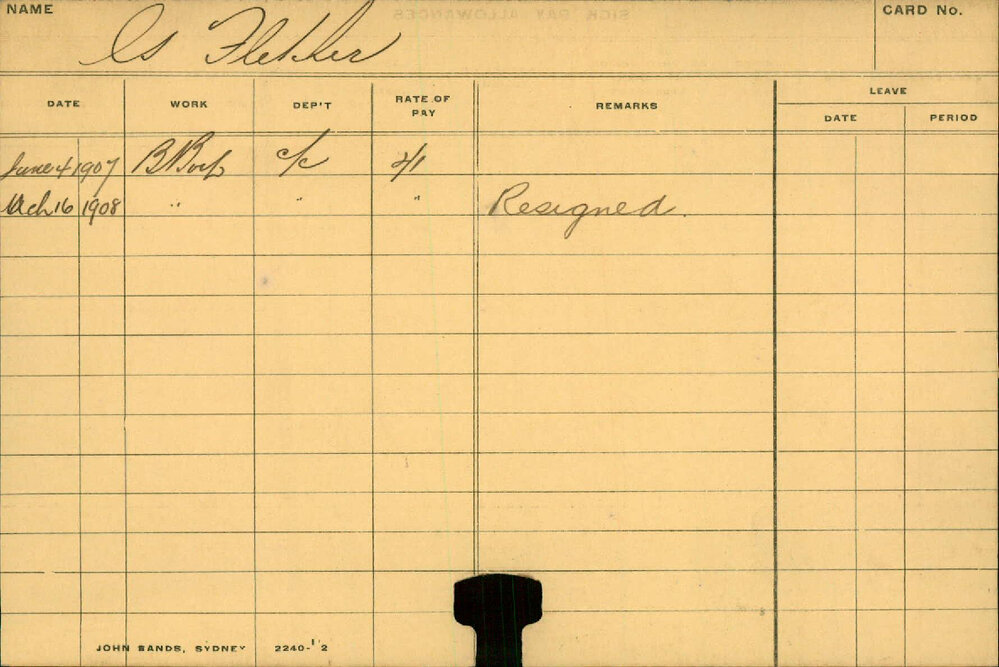 NAME Cs Fletcher CARD No.
LEAVE
DATE WORK DEP'T RATE OF PAY REMARKS DATE PERIOD
June 4 1907 B Boy c/c 2/1
Mch 16 1908 " " " Resigned.
JOHN SANDS, SYDNEY 2240-12